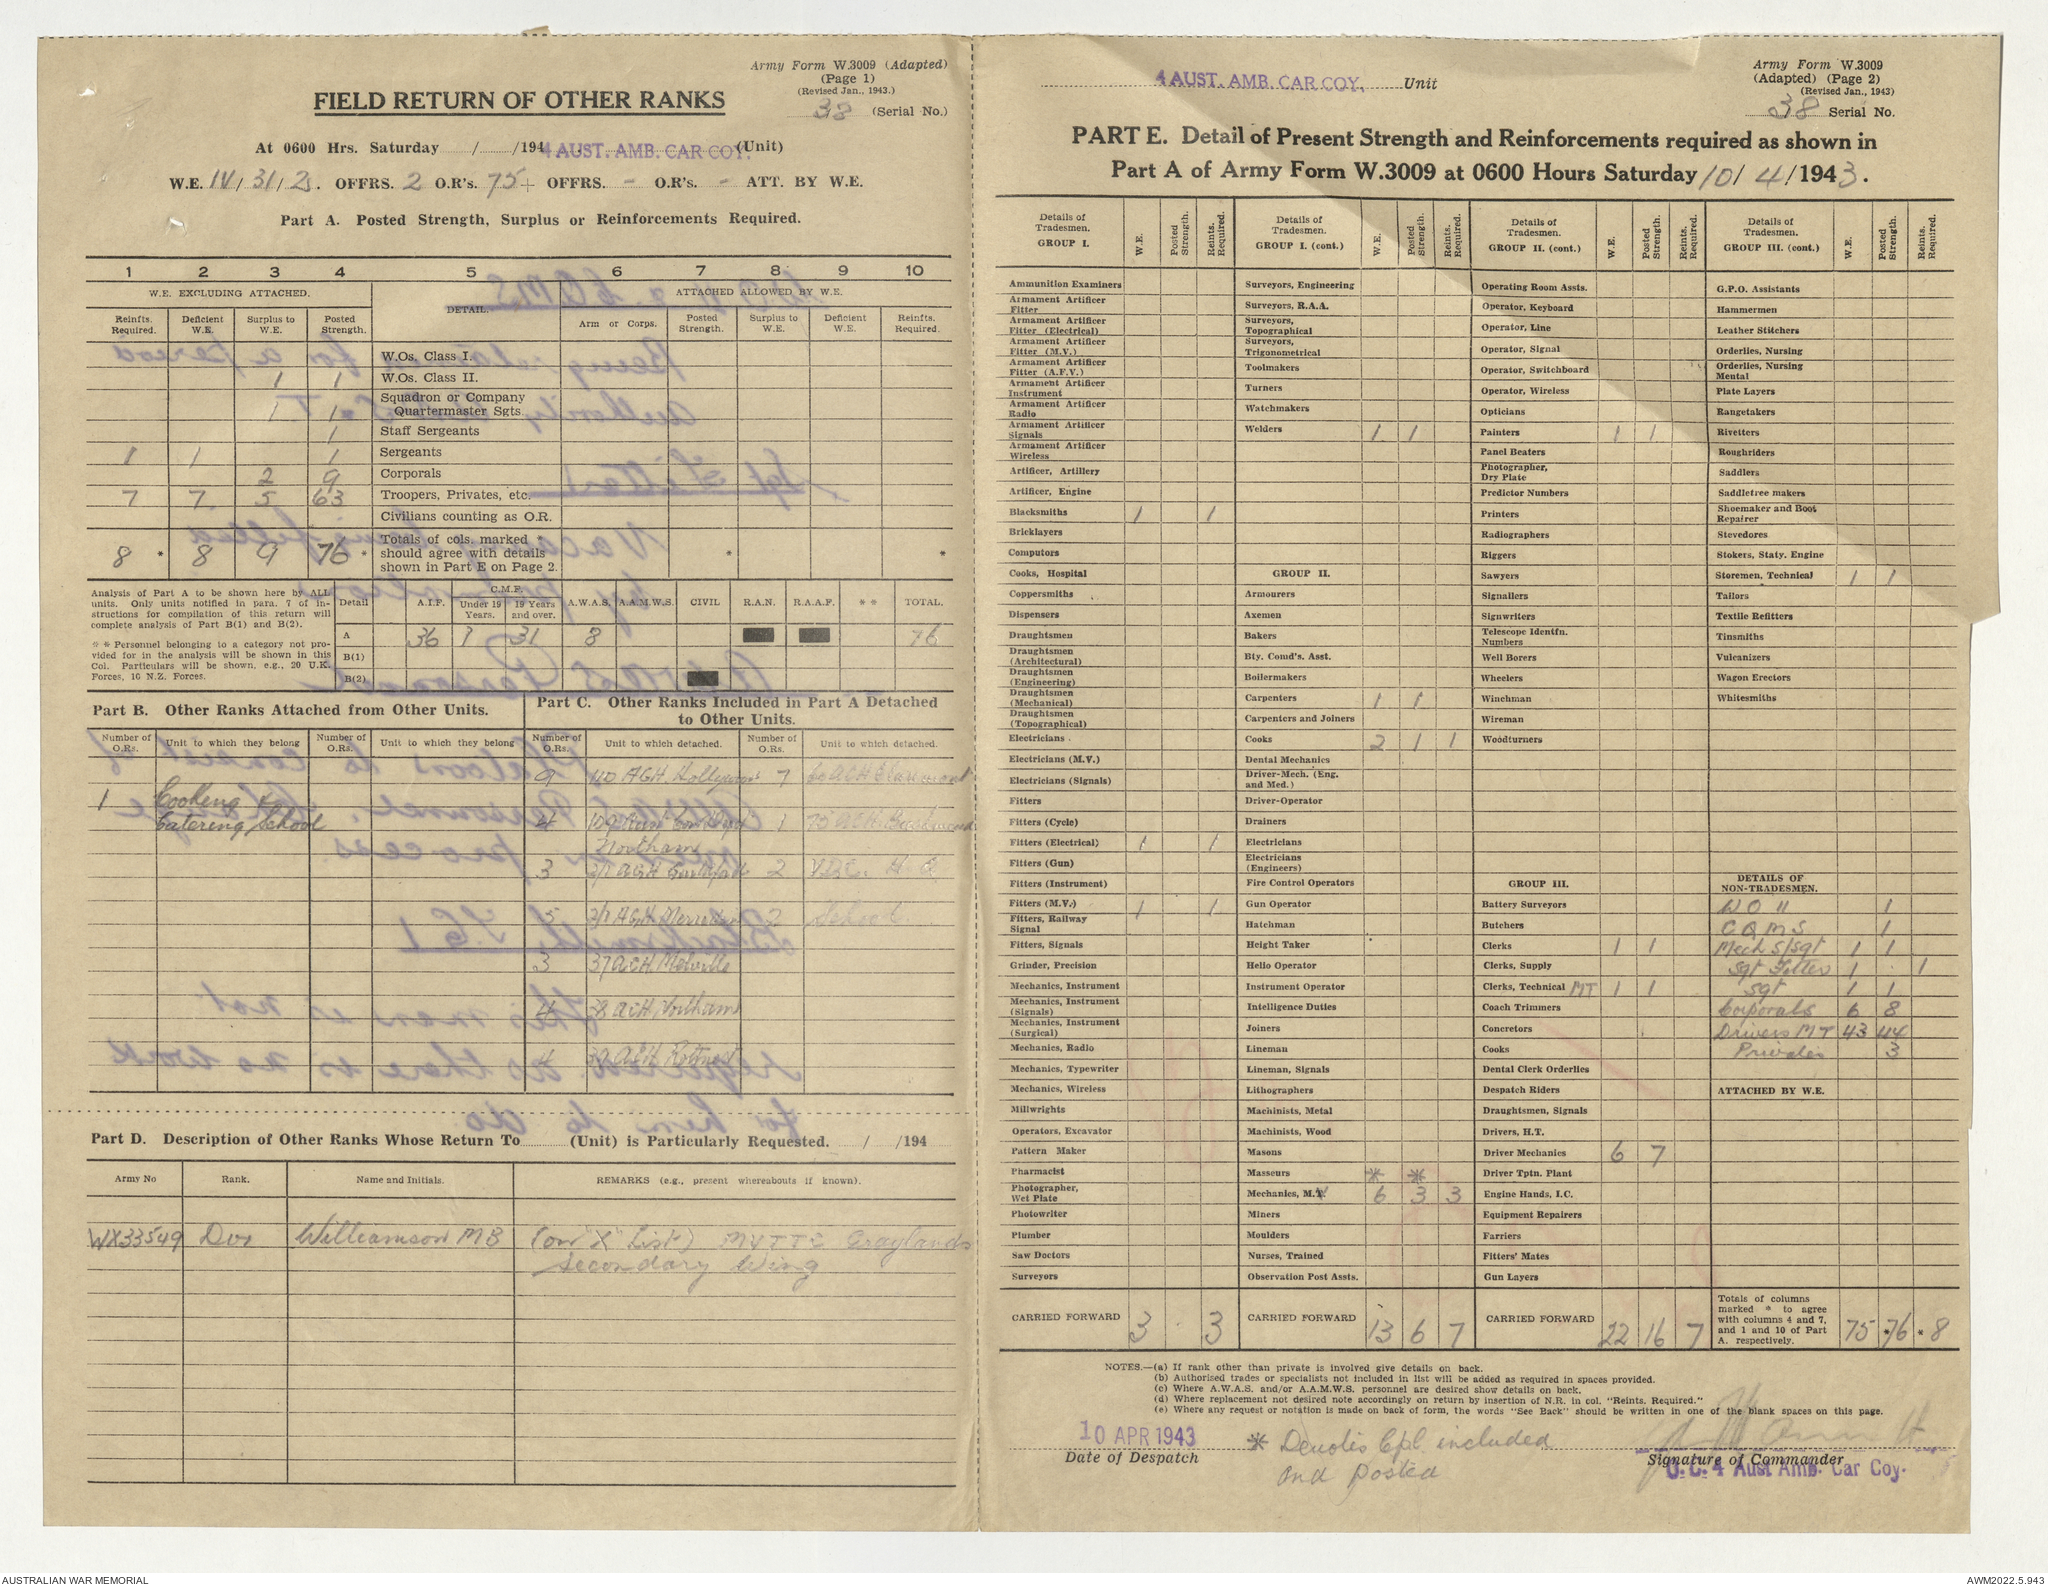 Army Form W.3009 (Adapted)
(Page 1)
(Revised Jan., 1943.)
38 (Serial No.)
FIELD RETURN OF OTHER RANKS
At 0600 Hrs. Saturday / /194 4 AUST. AMB. CAR COY. (Unit)
W.E. IV/31/2 OFFRS. 2 O.R's. 75 + OFFRS. - O.R's. - ATT. BY W.E.
Part A. Posted Strength, Surplus or Reinforcements Required.
1 2 3 4 5 6 7 8 9 10
W.E. EXCLUDING ATTACHED. DETAIL. ATTACHED ALLOWED BY W.E.
Reinfts. Required. Deficient W.E. Surplus to W.E. Posted Strength. Arm or Corps. Posted Strength. Surplus to W.E. Deficient W.E. Reinfts. Required.
W.Os. Class I.
1 1 W.Os. Class II.
1 1 Squadron or Company Quartermaster Sgts.
1 Staff Sergeants
1 1 1 Sergeants
2 9 Corporals
7 7 5 63 Troopers, Privates, etc.
Civilians counting as O.R.
8 * 8 9 76 * Totals of cols. marked * should agree with details shown in Part E on Page 2. * *
Analysis of Part A to be shown here by ALL units. Only units notified in para. 7 of instructions for compilation of this return will complete analysis of Part B(1) and B(2).
* * Personnel belonging to a category not provided for in the analysis will be shown in this Col. Particulars will be shown, e.g., 20 U.K. Forces, 16 N.Z. Forces.
Detail A.I.F. C.M.F. Under 19 Years. 19 Years and over. A.W.A.S. A.A.M.W.S. CIVIL R.A.N. R.A.A.F. * * TOTAL.
A 36 1 31 8 76
B(1)
B(2)
Part B. Other Ranks Attached from Other Units.
Part C. Other Ranks Included in Part A Detached to Other Units.
Number of O.Rs. Unit to which they belong Number of O.Rs. Unit to which they belong Number of O.Rs. Unit to which detached. Number of O.Rs. Unit to which detached.
9 110 AGH Hollywood 7
1 Cooking &
Catering School 4 1
Northam
3 2/1 AGH Guildford 2 V.D.C. H.Q.
5 2/1 AGH Merredin 2 School
3 37 ACH Melville
4 38 ACH Northam
4 39 ACH Rottnest
Part D. Description of Other Ranks Whose Return To (Unit) is Particularly Requested. / /194
Army No Rank. Name and Initials. REMARKS (e.g., present whereabouts if known).
WX33549 Dvr Williamson MB (on "X" List) MVTTC Graylands
Secondary Wing
4 AUST. AMB. CAR COY. Unit
Army Form W.3009
(Adapted) (Page 2)
(Revised Jan., 1943)
38 Serial No.
PART E. Detail of Present Strength and Reinforcements required as shown in
Part A of Army Form W.3009 at 0600 Hours Saturday 10/4/1943.
Details of Tradesmen. GROUP I. W.E. Posted Strength. Reints. Required.
Ammunition Examiners
Armament Artificer Fitter
Armament Artificer Fitter (Electrical)
Armament Artificer Fitter (M.V.)
Armament Artificer Fitter (A.F.V.)
Armament Artificer Instrument
Armament Artificer Radio
Armament Artificer Signals
Armament Artificer Wireless
Artificer, Artillery
Artificer, Engine
Blacksmiths 1 1
Bricklayers
Computors
Cooks, Hospital
Coppersmiths
Dispensers
Draughtsmen
Draughtsmen (Architectural)
Draughtsmen (Engineering)
Draughtsmen (Mechanical)
Draughtsmen (Topographical)
Electricians
Electricians (M.V.)
Electricians (Signals)
Fitters
Fitters (Cycle)
Fitters (Electrical) 1 1
Fitters (Gun)
Fitters (Instrument)
Fitters (M.V.) 1 1
Fitters, Railway Signal
Fitters, Signals
Grinder, Precision
Mechanics, Instrument
Mechanics, Instrument (Signals)
Mechanics, Instrument (Surgical)
Mechanics, Radio
Mechanics, Typewriter
Mechanics, Wireless
Millwrights
Operators, Excavator
Pattern Maker
Pharmacist
Photographer, Wet Plate
Photowriter
Plumber
Saw Doctors
Surveyors
CARRIED FORWARD 3 . 3
Details of Tradesmen. GROUP I. (cont.) W.E. Posted Strength. Reints. Required.
Surveyors, Engineering
Surveyors, R.A.A.
Surveyors, Topographical
Surveyors, Trigonometrical
Toolmakers
Turners
Watchmakers
Welders 1 1
GROUP II.
Armourers
Axemen
Bakers
Bty. Comd's. Asst.
Boilermakers
Carpenters 1 1
Carpenters and Joiners
Cooks 2 1 1
Dental Mechanics
Driver-Mech. (Eng. and Med.)
Driver-Operator
Drainers
Electricians
Electricians (Engineers)
Fire Control Operators
Gun Operator
Hatchman
Height Taker
Helio Operator
Instrument Operator
Intelligence Duties
Joiners
Lineman
Lineman, Signals
Lithographers
Machinists, Metal
Machinists, Wood
Masons
Masseurs * *
Mechanics, M.T. 6 3 3
Miners
Moulders
Nurses, Trained
Observation Post Assts.
CARRIED FORWARD 13 6 7
Details of Tradesmen. GROUP II. (cont.) W.E. Posted Strength. Reints. Required.
Operating Room Assts.
Operator, Keyboard
Operator, Line
Operator, Signal
Operator, Switchboard
Operator, Wireless
Opticians
Painters 1 1
Panel Beaters
Photographer, Dry Plate
Predictor Numbers
Printers
Radiographers
Riggers
Sawyers
Signallers
Signwriters
Telescope Identfn. Numbers
Well Borers
Wheelers
Winchman
Wireman
Woodturners
GROUP III.
Battery Surveyors
Butchers
Clerks 1 1
Clerks, Supply
Clerks, Technical MT 1 1
Coach Trimmers
Concretors
Cooks
Dental Clerk Orderlies
Despatch Riders
Draughtsmen, Signals
Drivers, H.T.
Driver Mechanics 6 7
Driver Tptn. Plant
Engine Hands, I.C.
Equipment Repairers
Farriers
Fitters' Mates
Gun Layers
CARRIED FORWARD 22 16 7
Details of Tradesmen. GROUP III. (cont.) W.E. Posted Strength. Reints. Required.
G.P.O. Assistants
Hammermen
Leather Stitchers
Orderlies, Nursing
Orderlies, Nursing Mental
Plate Layers
Rangetakers
Rivetters
Roughriders
Saddlers
Saddletree makers
Shoemaker and Boot Repairer
Stevedores
Stokers, Staty. Engine
Storemen, Technical 1 1
Tailors
Textile Refitters
Tinsmiths
Vulcanizers
Wagon Erectors
Whitesmiths
DETAILS OF NON-TRADESMEN.
W O II 1
C Q M S 1
Mech S/Sgt 1 1
Sgt Fitter 1 . 1
Sgt 1 1
Corporals 6 8
Drivers MT 43 44
Privates 3
ATTACHED BY W.E.
Totals of columns marked * to agree with columns 4 and 7, and 1 and 10 of Part A. respectively. 75 *76 *8
NOTES.—(a) If rank other than private is involved give details on back.
(b) Authorised trades or specialists not included in list will be added as required in spaces provided.
(c) Where A.W.A.S. and/or A.A.M.W.S. personnel are desired show details on back.
(d) Where replacement not desired note accordingly on return by insertion of N.R. in col. "Reints. Required."
(e) Where any request or notation is made on back of form, the words "See Back" should be written in one of the blank spaces on this page.
10 APR 1943
Date of Despatch
* Denotes Cpl included
and posted
Signature of Commander
O.C. 4 Aust Amb. Car Coy.
AUSTRALIAN WAR MEMORIAL
AWM2022.5.943